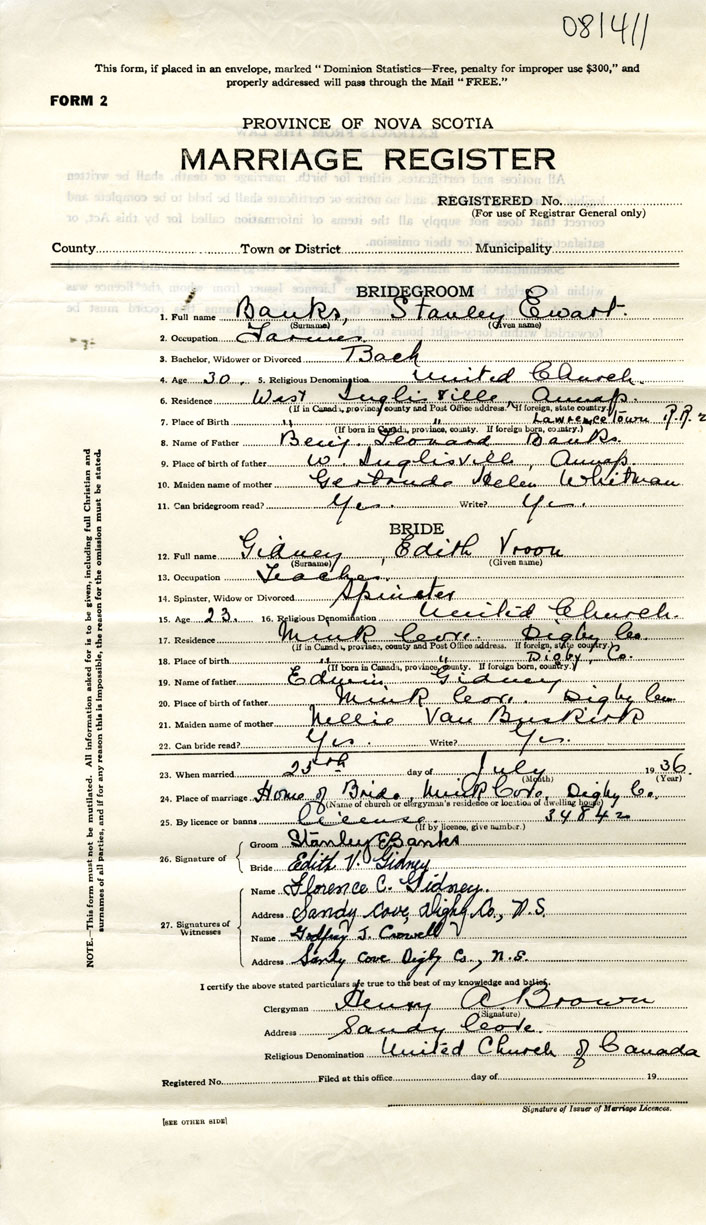 081411
This form, if placed in an envelope, marked "Dominion Statistics—Free, penalty for improper use $300," and
properly addressed will pass through the Mail "FREE."
FORM 2
PROVINCE OF NOVA SCOTIA
MARRIAGE REGISTER
REGISTERED No.
(For use of Registrar General only)
County Town or District Municipality
BRIDEGROOM
1. Full name Banks, Stanley Ewart.
(Surname) (Given name)
2. Occupation Farmer
3. Bachelor, Widower or Divorced Bach
4. Age 30. 5. Religious Denomination United Church.
6. Residence West Inglisville Annap.
(If in Canada, province, county and Post Office address. If foreign, state country.)
7. Place of Birth " " Lawrencetown R.R. 2
(If born in Canada, province, county. If foreign born, country.)
8. Name of Father Benj. Leonard Banks.
9. Place of birth of father W. Inglisville, Annap.
10. Maiden name of mother Gertrude Helen Whitman
11. Can bridegroom read? Yes. Write? Yes.
BRIDE
12. Full name Gidney, Edith Vroom
(Surname) (Given name)
13. Occupation Teacher.
14. Spinster, Widow or Divorced Spinster
15. Age 23. 16. Religious Denomination United Church.
17. Residence Mink Cove. Digby Co.
(If in Canada, province, county and Post Office address. If foreign, state country.)
18. Place of birth " " Digby, Co.
(If born in Canada, province, county. If foreign born, country.)
19. Name of father Edwin Gidney
20. Place of birth of father Mink Cove. Digby Co.
21. Maiden name of mother Nellie Van Buskirk
22. Can bride read? Yes. Write? Yes.
23. When married 25th day of July 1936.
(Month) (Year)
24. Place of marriage Home of Bride, Mink Cove, Digby Co.
(Name of church or clergyman's residence or location of dwelling house)
25. By licence or banns License. 34842
(If by licence, give number.)
26. Signature of Groom Stanley E Banks
Bride Edith V. Gidney
27. Signatures of Witnesses Name Florence C. Gidney.
Address Sandy Cove, Digby Co., N.S.
Name Godfrey J. Crowell
Address Sandy Cove Digby Co., N.S.
I certify the above stated particulars are true to the best of my knowledge and belief.
Clergyman Henry A. Brown
(Signature)
Address Sandy Cove.
Religious Denomination United Church of Canada
Registered No. Filed at this office day of 19
Signature of Issuer of Marriage Licences.
[SEE OTHER SIDE]
NOTE.—This form must not be mutilated. All information asked for is to be given, including full Christian and
surnames of all parties, and if for any reason this is impossible, the reason for the omission must be stated.